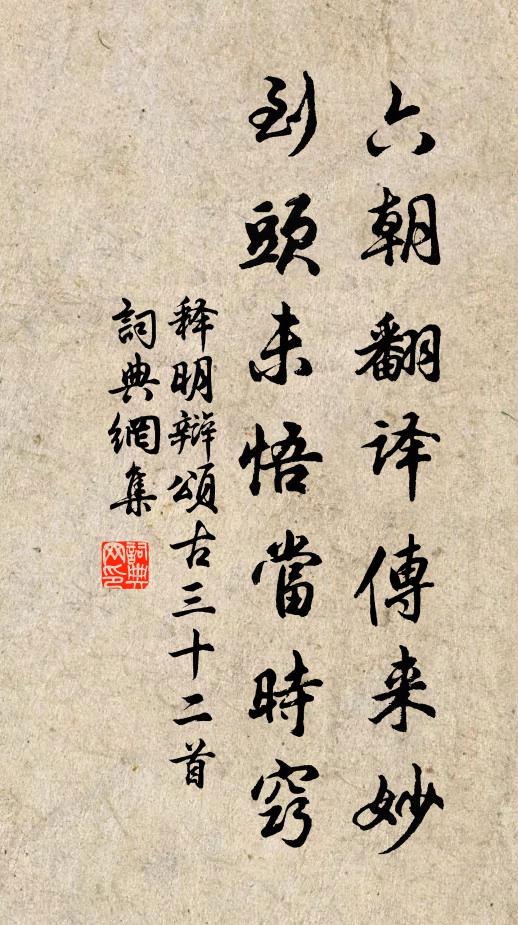 六朝翻译傳来妙
到頭未悟當時窍
释明辩頌古三十二首
詞典網集
詞典网印